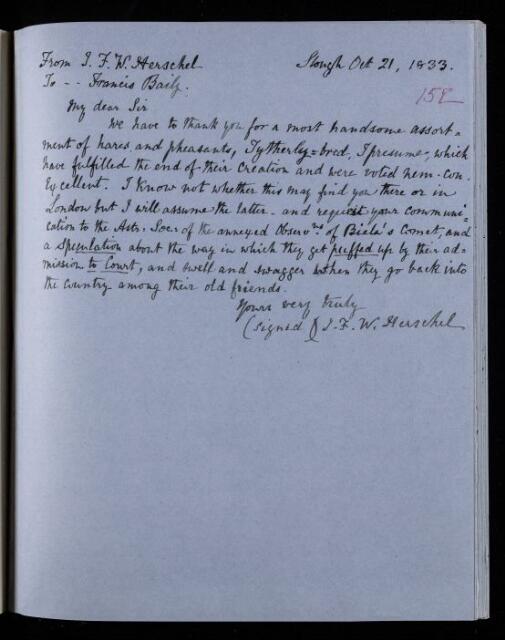 From J. F. W. Herschel Slough Oct 21, 1833.
To -- Francis Baily.
152
My dear Sir
We have to thank you for a most handsome assort-
ment of hares, and pheasants, Tytherly=bred, I presume, which
have fulfilled the end of their creation and were voted nem. con.
Excellent. I know not whether this may find you there or in
London but I will assume the latter - and request your communi-
cation to the Astr. Soc. of the annexed Observns of Biela's Comet, and
a Speculation about the way in which they get puffed up by their ad-
mission to Court, and swell and swagger when they go back into
the country among their old friends.
Yours very truly
(signed) J. F. W. Herschel